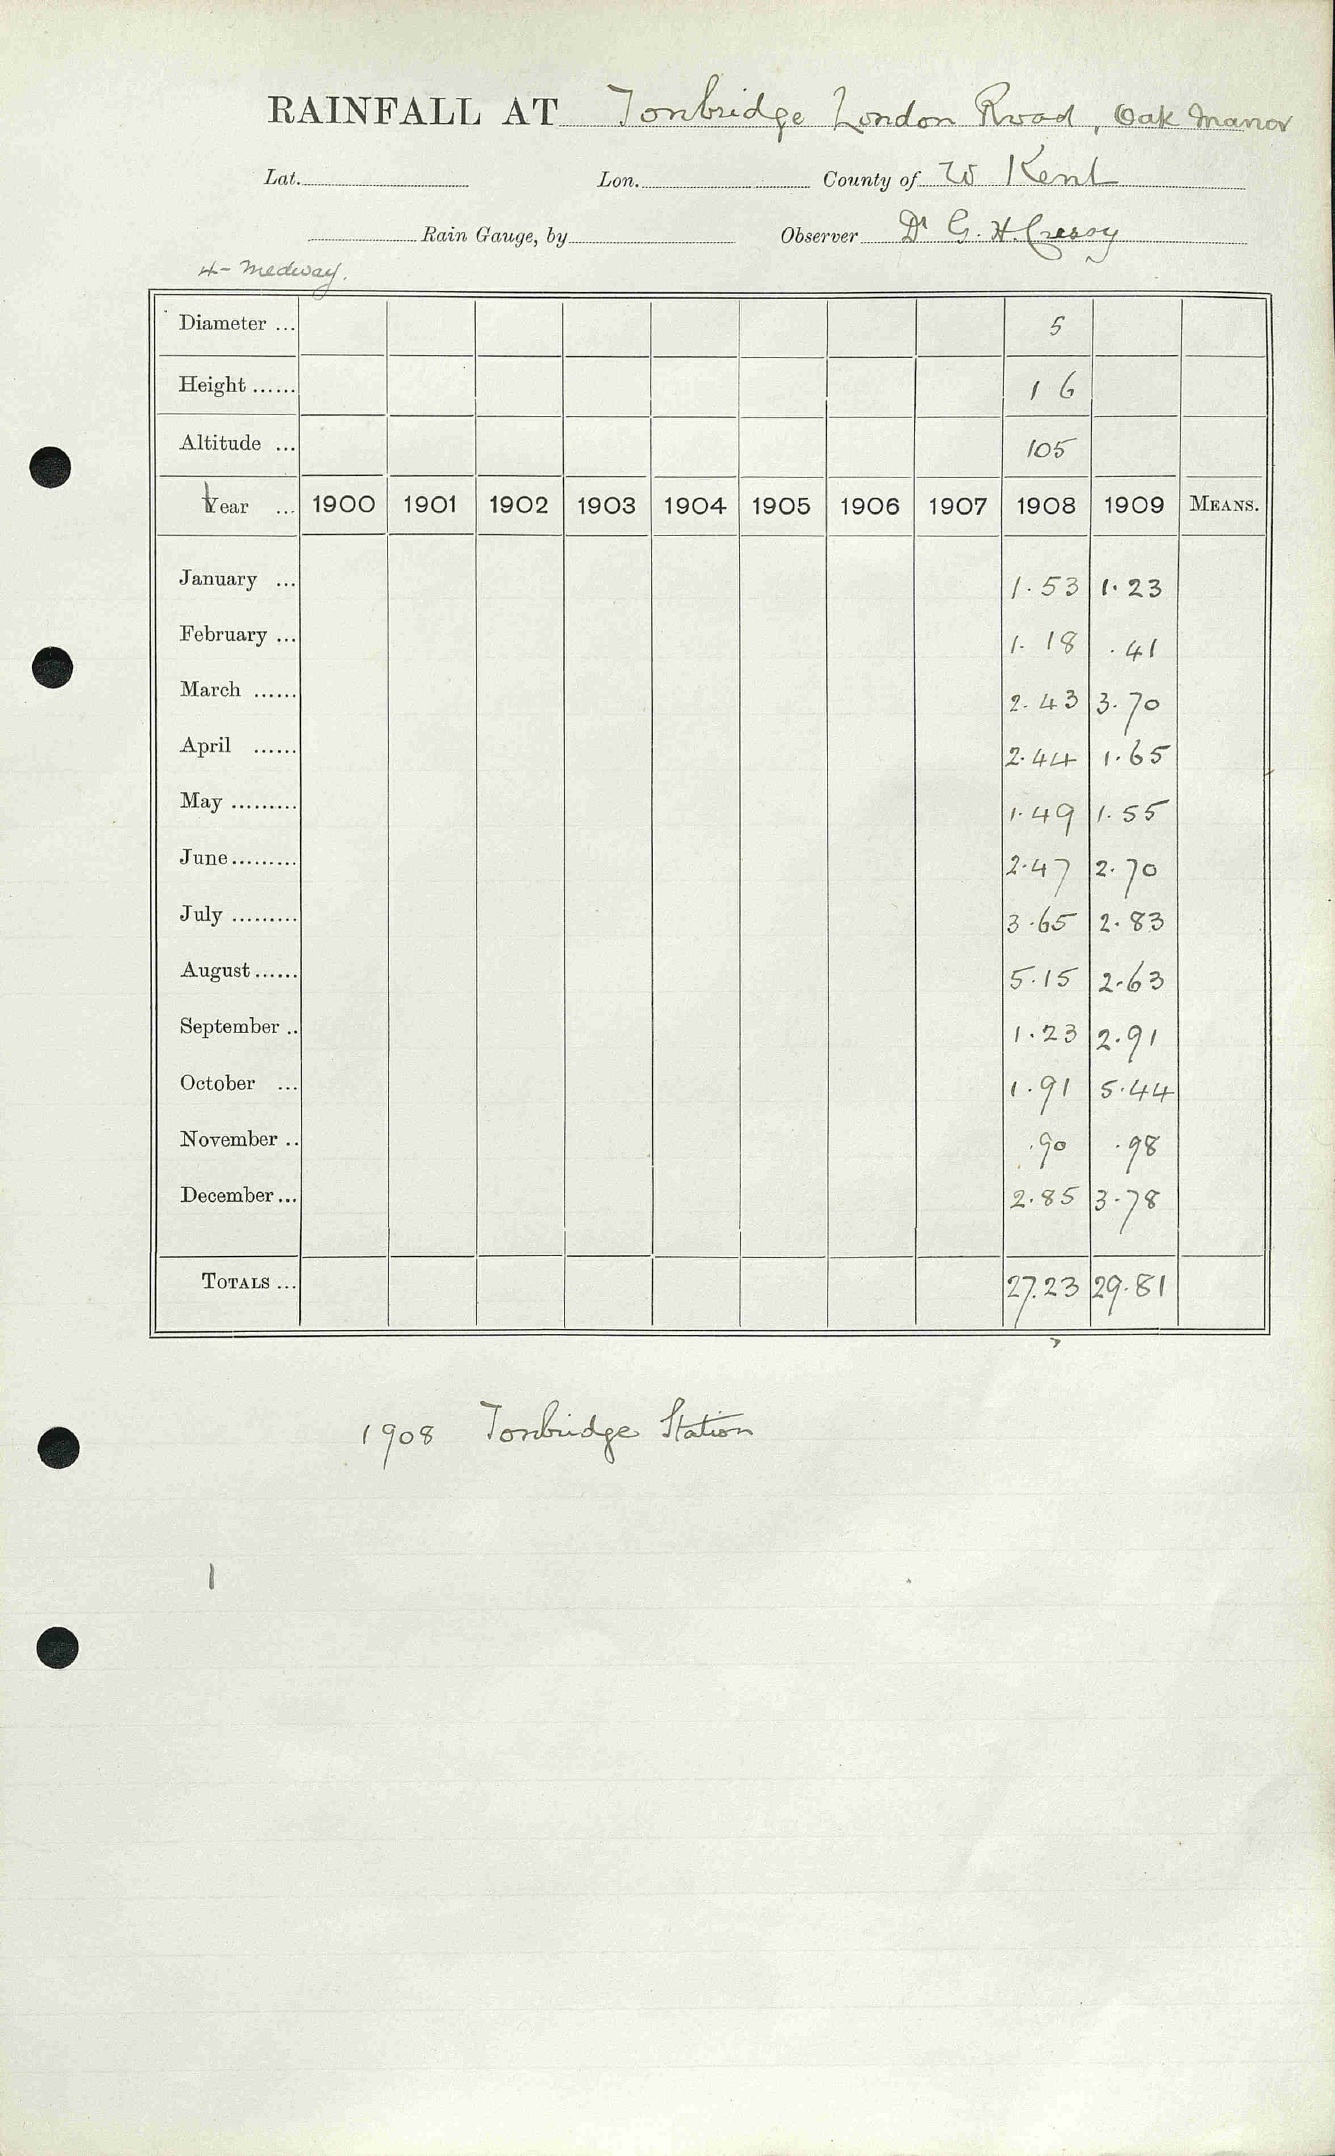 RAINFALL AT Tonbridge London Road, Oak Manor
Lat. Lon. County of W Kent
Rain Gauge, by Observer Dr G. H. Cressy
4- Medway.
Diameter ... 5
Height ...... 1 6
Altitude ... 105
Year ... 1900 1901 1902 1903 1904 1905 1906 1907 1908 1909 MEANS.
January ... 1.53 1.23
February ... 1.18 .41
March ...... 2.43 3.70
April ...... 2.44 1.65
May ......... 1.49 1.55
June ......... 2.47 2.70
July ......... 3.65 2.83
August ...... 5.15 2.63
September .. 1.23 2.91
October ... 1.91 5.44
November .. .90 .98
December ... 2.85 3.78
TOTALS ... 27.23 29.81
1908 Tonbridge Station